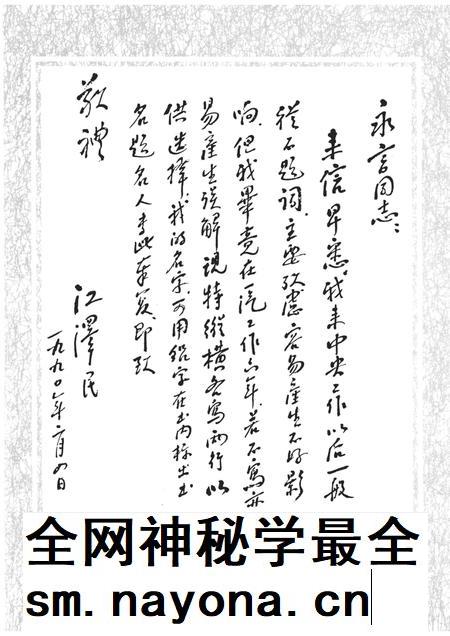 永言同志:
来信早悉。我来中央工作以后一般
從不題詞,主要考慮容易產生不好影
响,但我畢竟在一汽工作六年,若不寫亦
易產生误解,現特縱橫各寫两行以
供选擇,我的名字可用鉛字在书内标出书
名题名人。专此奉复,即致
敬禮
江澤民
一九九〇年二月四日
全网神秘学最全
sm.nayona.cn